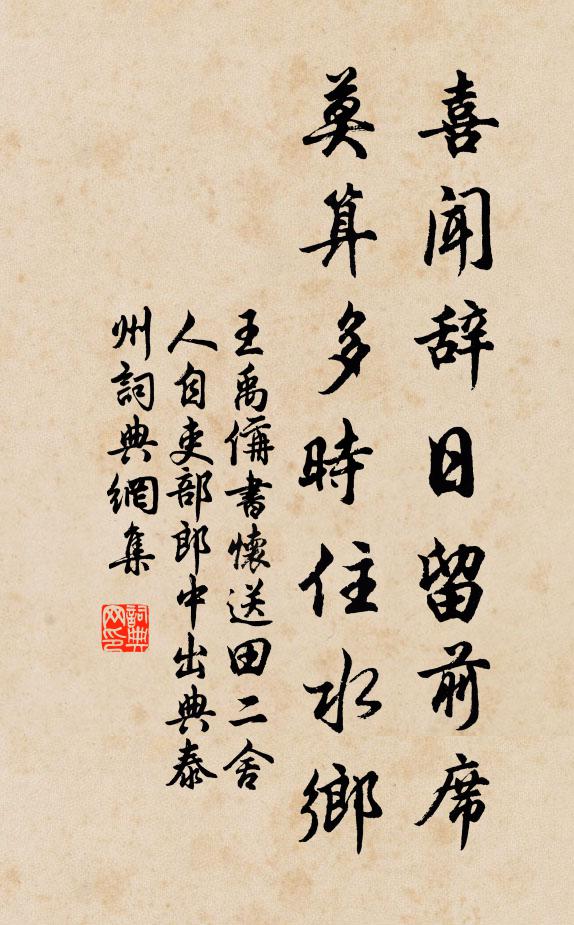 喜聞辞日留前席
莫算多時住水鄉
王禹偁書懷送田二舍
人自吏部郎中出典泰
州詞典網集
詞典
网印